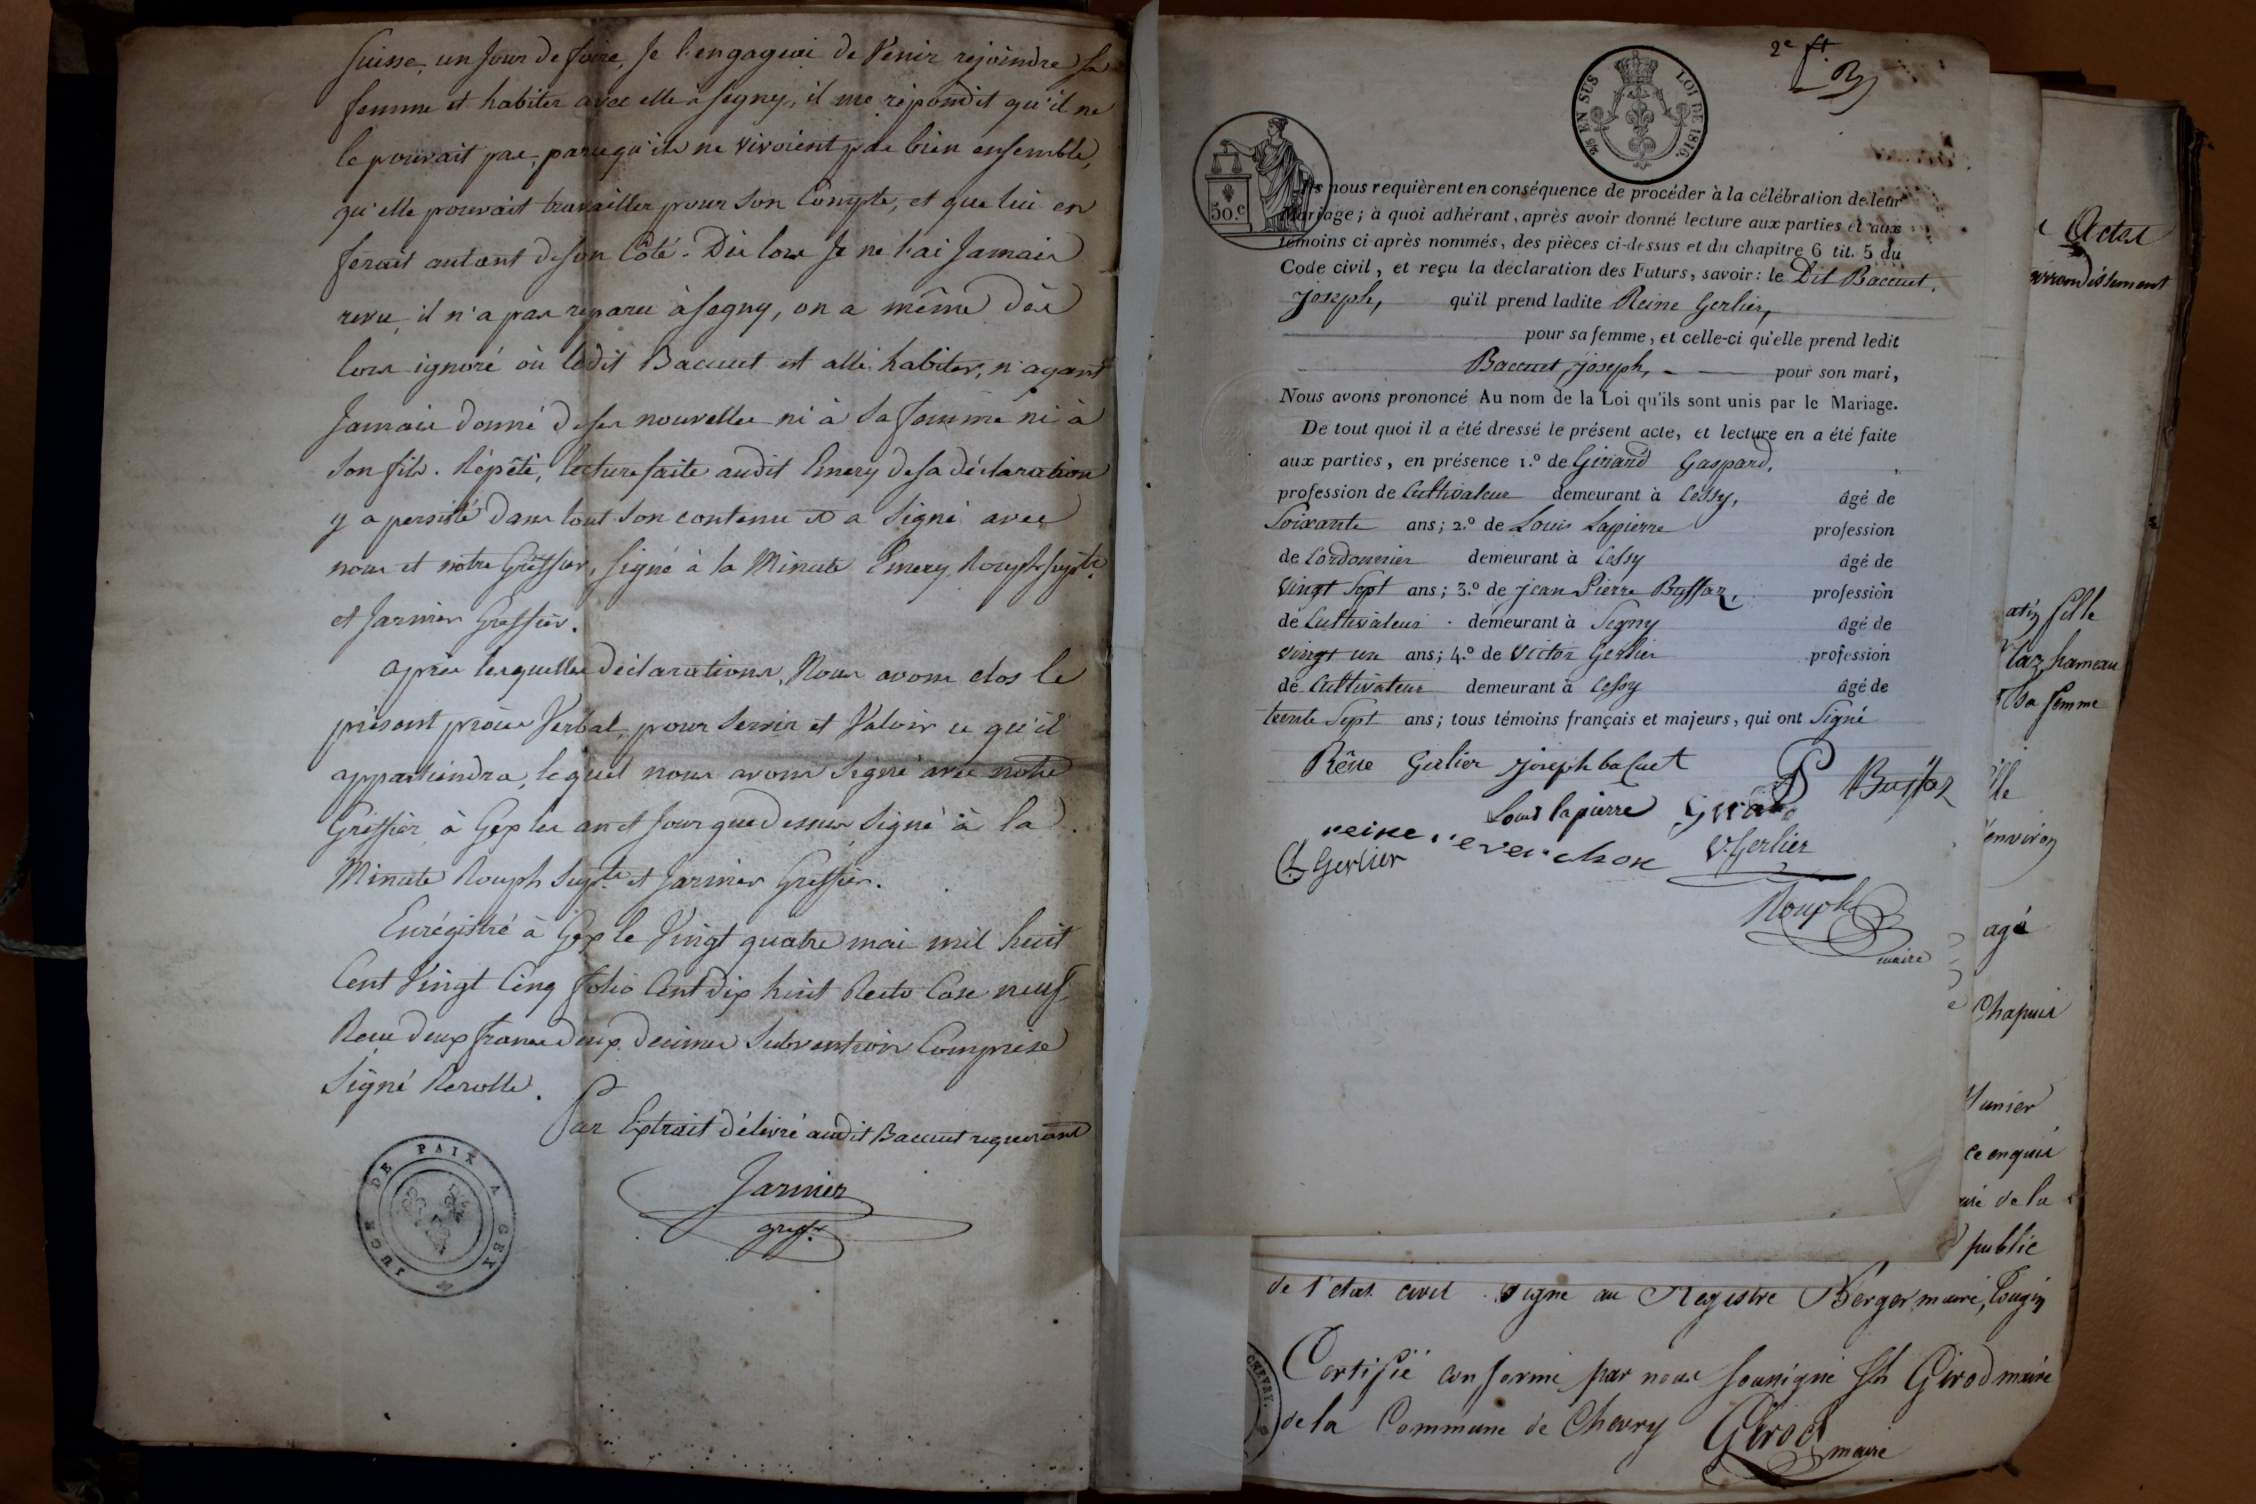 Suisse, un Jour de foire, Je l'engageai de Venir rejoindre sa
femme et habiter avec elle à Segny, il me répondit qu'il ne
le pouvait pas, parcequ'ils ne vivoient pas bien ensemble,
qu'elle pouvait travailler pour son Compte, et que lui en
ferait autant de son Côté. Dès lors Je ne l'ai Jamais
revu, il n'a pas reparu à Segny, on a même dès
lors ignoré où ledit Bacuet est allé habiter, n'ayant
Jamais donné de ses nouvelles ni à sa femme ni à
Son fils. Répété, lecture faite audit Emery de sa déclaration
y a persisté dans tout son contenu et a Signé avec
nous et notre Greffier, Signé à la Minute Emery, Rouph supt.
et Jarnier Greffier.
après lesquelles déclarations, Nous avons clos le
présent procès Verbal, pour Servir et Valoir ce qu'il
appartiendra, lequel nous avons Signé avec notre
Greffier à Gex les an et Jour que dessus Signé à la
Minute Rouph Supt. et Jarnier Greffier.
Enrégistré à Gex le Vingt quatre mai mil huit
Cent Vingt Cinq folio Cent dix huit Recto Case neuf
Recu deux francs deux decimes Subvention Comprise
Signé Revolle.
Par Extrait délivré audit Bacuet requerant
Jarnier
greff.
JUGE DE PAIX A GEX
2e ft.
25 EN SUS LOI DE 1816.
50.c
Ils nous requièrent en conséquence de procéder à la célébration de leur
Mariage; à quoi adhérant, après avoir donné lecture aux parties et aux
témoins ci-après nommés, des pièces ci-dessus et du chapitre 6 tit. 5 du
Code civil, et reçu la déclaration des Futurs, savoir: le Dit Bacuet,
joseph, qu'il prend ladite Reine Gerlier,
pour sa femme, et celle-ci qu'elle prend ledit
Bacuet joseph, pour son mari,
Nous avons prononcé Au nom de la Loi qu'ils sont unis par le Mariage.
De tout quoi il a été dressé le présent acte, et lecture en a été faite
aux parties, en présence 1.º de Girard Gaspard,
profession de Cultivateur demeurant à Cessy, âgé de
Soixante ans; 2.º de Louis Lapierre profession
de Cordonnier demeurant à Cessy âgé de
vingt Sept ans; 3.º de jean Pierre Buffaz, profession
de Cultivateur demeurant à Segny âgé de
vingt un ans; 4.º de Victor Gerlier profession
de Cultivateur demeurant à Cessy âgé de
trente Sept ans; tous témoins français et majeurs, qui ont Signé
Rêne Gerlier joseph bacuet P Buffaz
Louis lapierre Girard
reine reverchon V. Gerlier
Gerlier
Rouph
maire
Actes
arrondissement
fille
hameau
sa femme
environ
agé
Chapuis
ce enquis
de la
public
de l'etat civil Signe au Registre Berger maire, Tougin
Certifié conforme par nous Soussigné Girod maire
de la Commune de Chevry Girod
maire
CHEVRY.